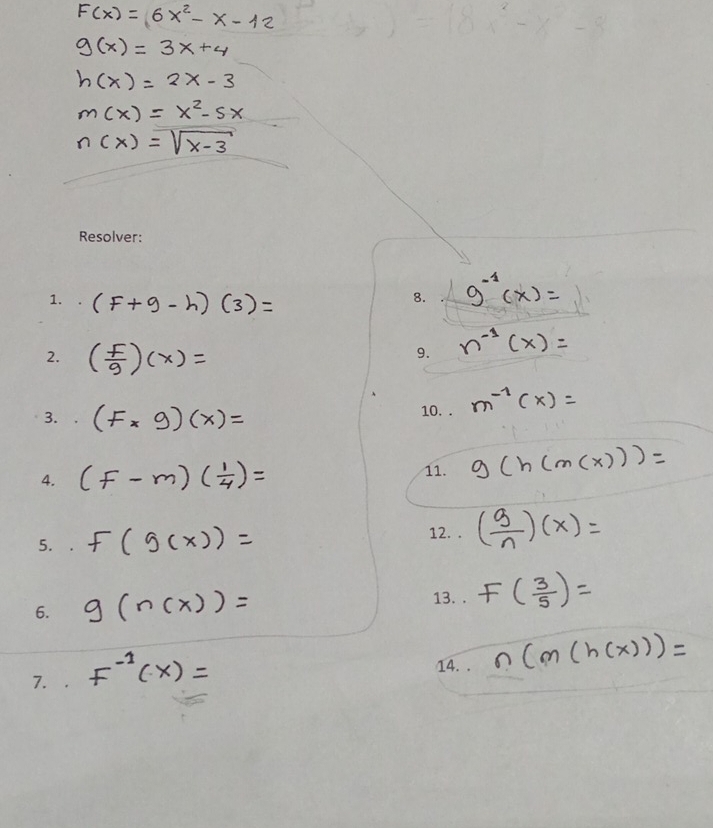 F(x) = 6x² - x - 12
g(x) = 3x+4
h(x) = 2x - 3
m(x) = x² - 5x
n(x) = √x-3
Resolver:
1. . (F+g-h) (3) =
2. (F/g)(x) =
3. . (F × g)(x) =
4. (F - m)(1/4) =
5. . F(g(x)) =
6. g(n(x)) =
7. . F⁻¹(x) =
8. . g⁻¹(x) =
9. n⁻¹(x) =
10. . m⁻¹(x) =
11. g(h(m(x))) =
12. . (g/n)(x) =
13. . F(3/5) =
14. . n(m(h(x))) =